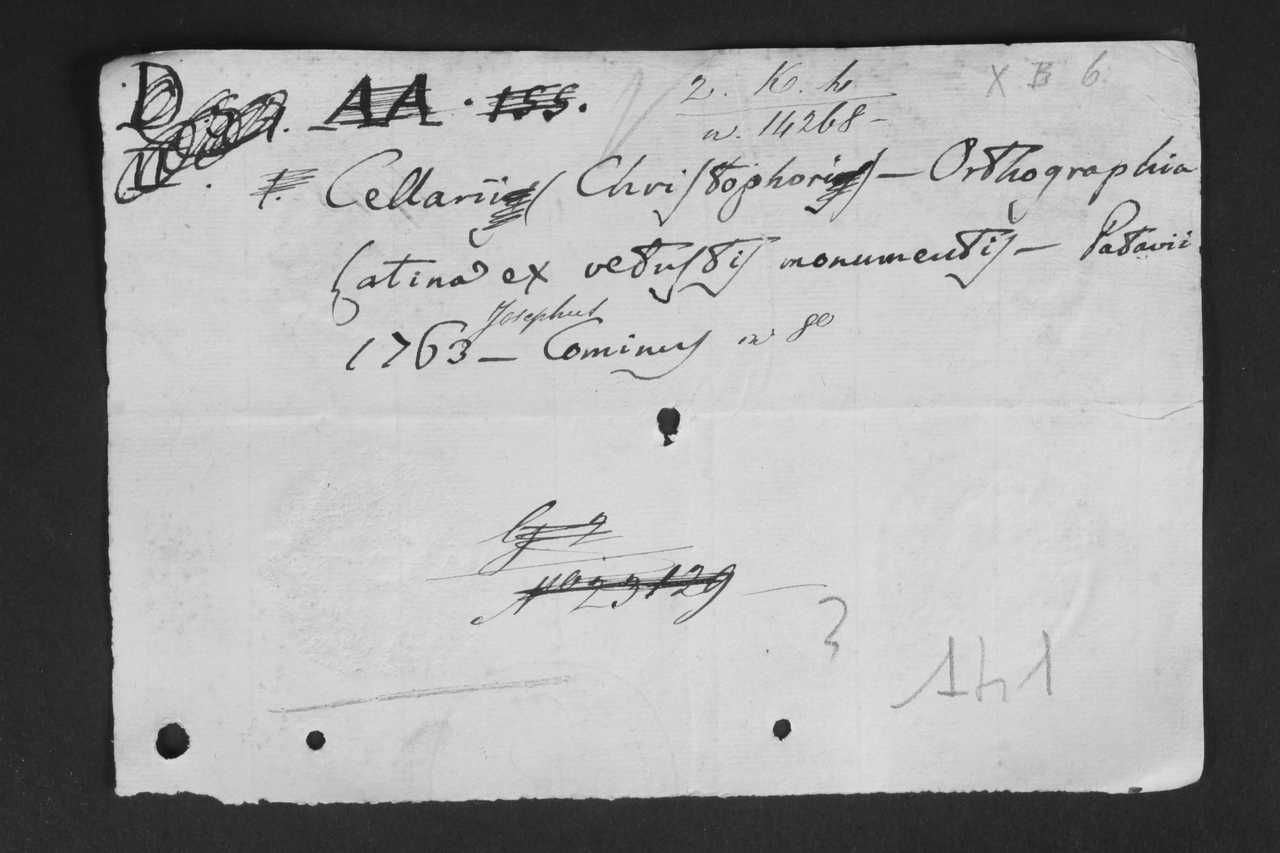 D AA. 155.
2. K. h
n. 14268
X B 6.
Cellarii (Christophori) — Orthographia
Latina ex vetustis monumentis — Patavii
Josephus
1763 — Cominus in 8o
No 23129
3
141